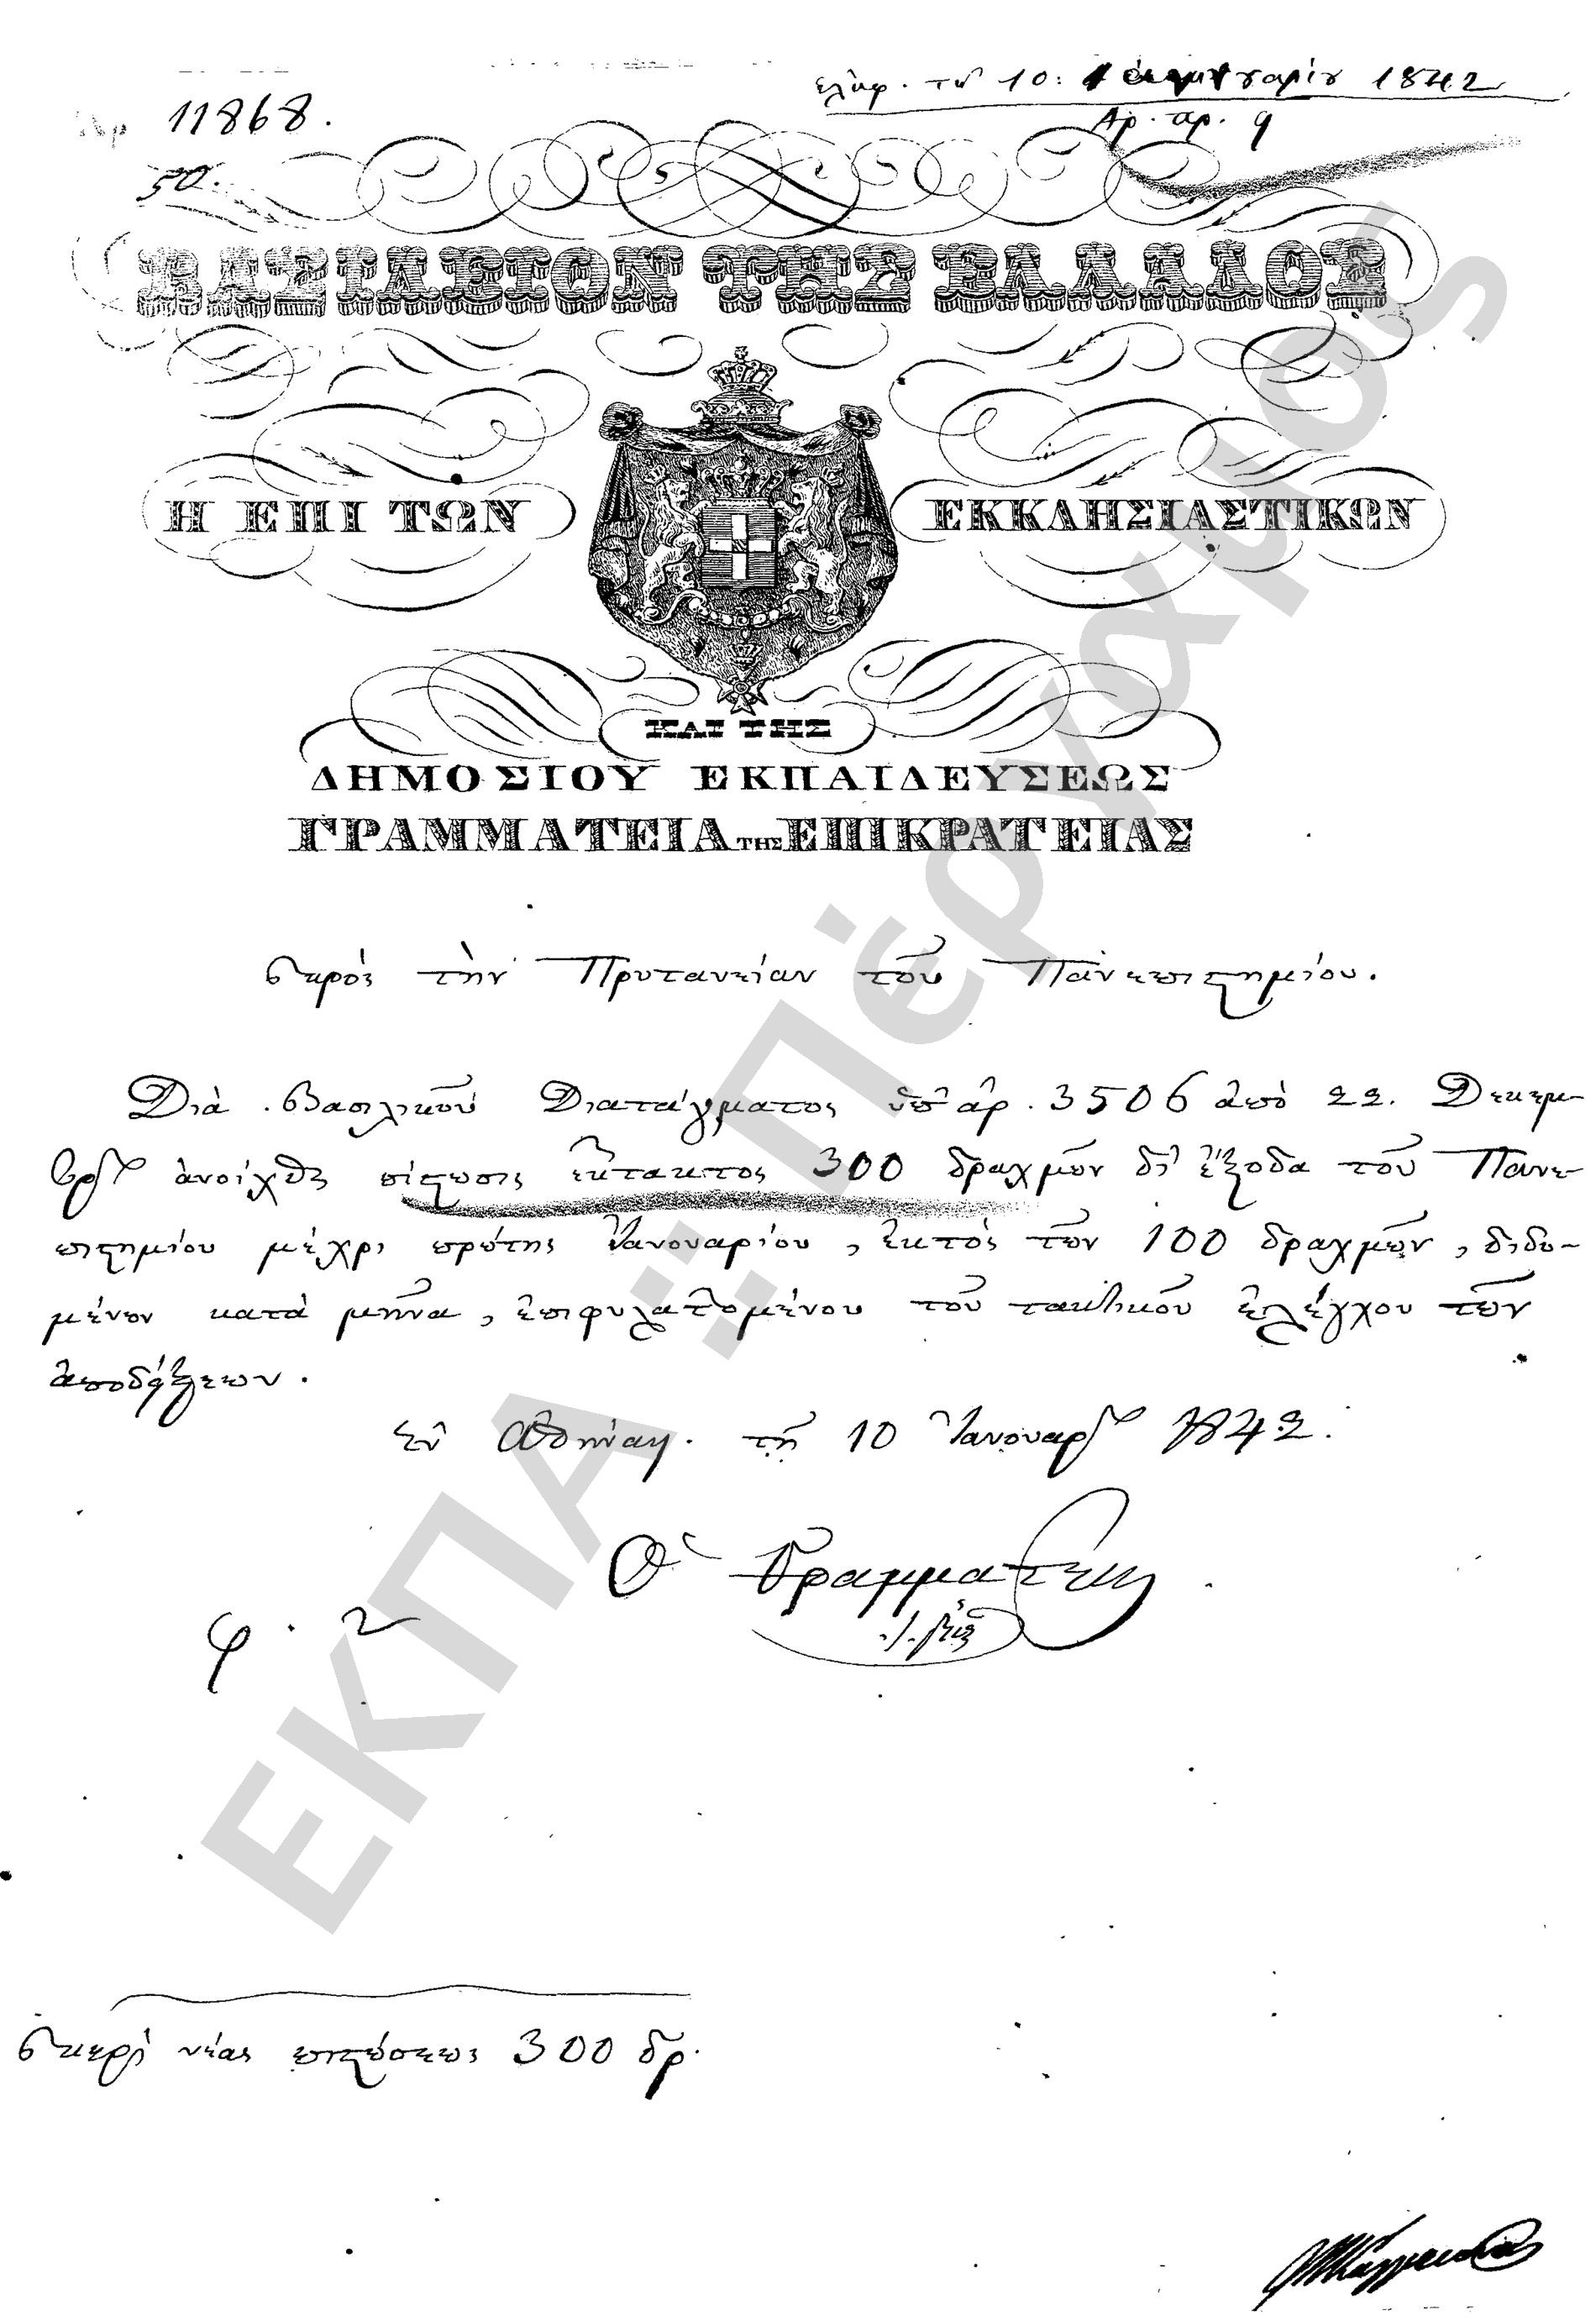 Αρ 11868.
50.
ἐλήφ. τῇ 10: Ἰανουαρίου 1842
Αρ. πρ. 9
ΒΑΣΙΛΕΙΟΝ ΤΗΣ ΕΛΛΑΔΟΣ
Η ΕΠΙ ΤΩΝ ΕΚΚΛΗΣΙΑΣΤΙΚΩΝ
ΚΑΙ ΤΗΣ
ΔΗΜΟΣΙΟΥ ΕΚΠΑΙΔΕΥΣΕΩΣ
ΓΡΑΜΜΑΤΕΙΑ ΤΗΣ ΕΠΙΚΡΑΤΕΙΑΣ
Πρὸς τὴν Πρυτανείαν τοῦ Πανεπιστημίου.
Διὰ Βασιλικοῦ Διατάγματος ὑπ' ἀρ. 3506 ἀπὸ 22. Δεκεμ-
βρίου ἀνοίχθη πίστωσις ἔκτακτος 300 δραχμῶν δι' ἔξοδα τοῦ Πανε-
πιστημίου μέχρι πρώτης Ἰανουαρίου, ἐκτὸς τῶν 100 δραχμῶν, διδο-
μένων κατὰ μῆνα, ἐπιφυλαττομένου τοῦ τακτικοῦ ἐλέγχου τῶν
ἀποδείξεων.
Ἐν Ἀθήναις τῇ 10 Ἰανουαρίου 1842.
Ὁ Γραμματεὺς
φ. 2
Περὶ νέας πιστώσεως 300 δρ.
ΕΚΠΑ :: Πέργαμος